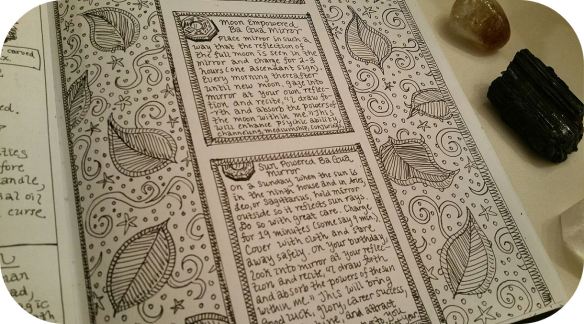 carved
Moon Empowered
Ba Gua Mirror
Place mirror in such a
way that the reflection of
the full moon is seen in the
mirror and charge for 2-3
hours (one ascendant sign).
Every morning thereafter
until new moon, gaze into
mirror at your own reflec-
tion and recite, "I draw fo-
rth and absorb the powers of
the moon within me." This
will enhance psychic ability,
channeling, mediumship,
Sun Powered Ba Gua
Mirror
On a Sunday when the sun is
in the ninth house and in Aries,
Leo, or Sagittarius, hold mirror
outside so it reflects sun rays.
Do so with great care. Charge
for 1-9 minutes (some say 9 min).
Cover with cloth and store
away safely. On your birthday
look into mirror at your reflec-
tion and recite, "I draw forth
and absorb the powers of the sun
within me." This will bring
good luck, glory, career success,
and attract
to you
fore
candle,
oil
curse